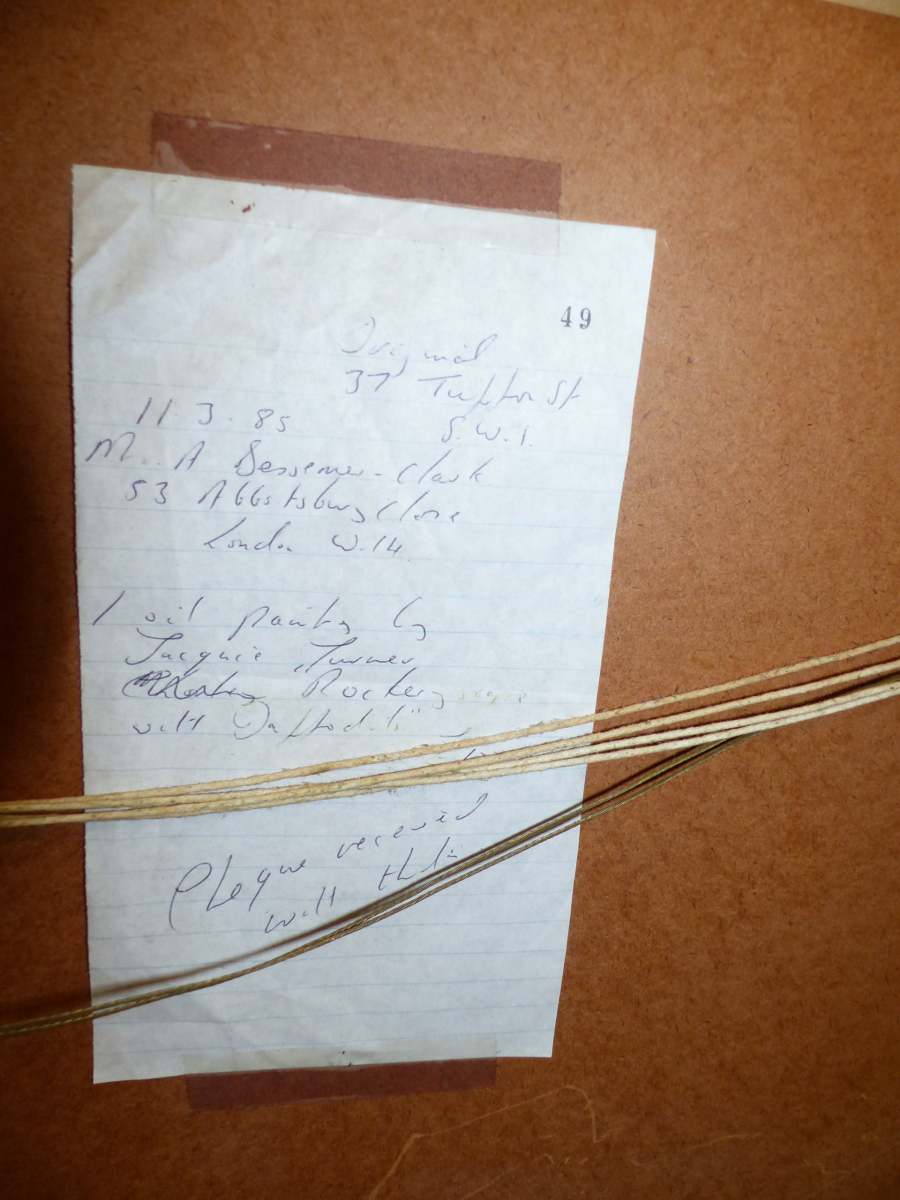 49
Original
37 Tufton St
11.3.85 S.W.1.
M. A Bessemer-Clark
53 Abbotsbury Close
London W.14
1 oil painting by
Jacquie Turner
Rockery
with Daffodils"
Cheque received
with thanks